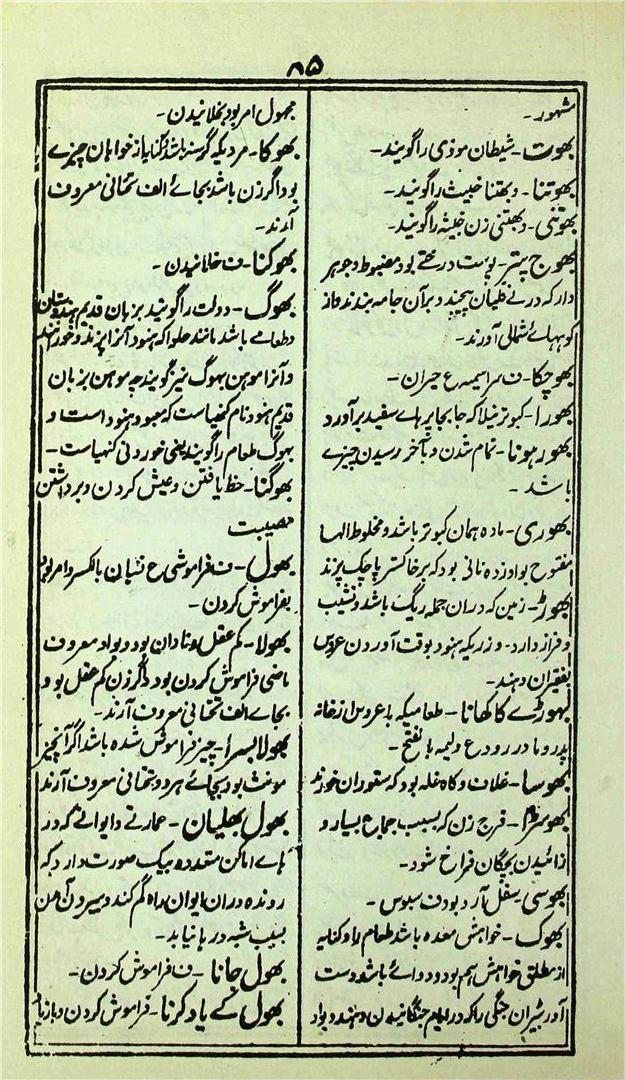 ۸۵
مشہور۔
بھوت۔ شیطان موذی را گویند۔
بھوتنا۔ و بھتنا خبیث را گویند۔
بھوتنی۔ و بھتنی زن خبیثہ را گویند۔
بھوج پتر۔ پوست درختے بود مضبوط و جوہر
دار کہ در نے قلیان پیچند و بر آن جامہ بندند و از
کوہہاے شمالی آورند۔
بھوچکا۔ ف سراسیمہ ع حیران۔
بھورا۔ کبوتر نیلا کہ جابجا پرہاے سفید برآورد
بھور ہونا۔ تمام شدن و بآخر رسیدن چیزے
باشد۔
بھوری۔ مادہ ہمان کبوتر باشد و مخلوط الہا
مفتوح بواو زدہ نانی بود کہ بر خاکستر پاچک پزند
بھوڑ۔ زمین کہ دران جملہ ریگ باشد و نشیب
و فراز دارد۔ و زریکہ ہنود بوقت آوردن عروس
بفقیران دہند۔
بہوڑے کا کھانا۔ طعامیکہ با عروس از خانہ
پدر و مادر رود ع ولیمہ بالفتح۔
بھوسا۔ غلاف و کاہ غلہ بود کہ ستوران خورند
فرج زن کہ بسبب جماع بسیار و
زائیدن بچگان فراخ شود۔
بھوسی۔ سفل آرد بود ف سبوس۔
بھوک۔ خواہش معدہ باشد طعام را و کنایہ
از مطلق خواہش ہم بود و دوائے باشد دست
آور بٹیران جنگی را کہ در ایام جنگانیدن دہند و بواو
مجہول امر بود بخلانیدن۔
بھوکا۔ مردیکہ گرسنہ باشد کنایہ از خواہان چیزے
بود اگر زن باشد بجاے الف تحتانی معروف
آرند۔
بھوکنا۔ ف خلانیدن۔
بھوگ۔ دولت را گویند بزبان قدیم ہندوستان
و طعامے باشد مانند حلوا کہ ہنود آنرا پزند و خورند
و آنرا موہن بھوگ نیز گویند چہ موہن بزبان
قدیم ہنود نام کنھیا ست کہ معبود ہنود است و
بھوگ طعام را گویند یعنی خوردنی کنھیاست۔
بھوگنا۔ حظ یافتن و عیش کردن و برداشتن
مصیبت
بھول۔ ف فراموشی ع نسیان بالکسر و امر بود
بفراموش کردن۔
بھولا۔ کم عقل و نادان بود و بواو معروف
ماضی فراموش کردن بود و اگر زن کم عقل بود
بجاے الف تحتانی معروف آرند۔
بھولا بسرا۔ چیز فراموش شدہ باشد اگر آن چیز
مونث بود بجاے ہر دو تحتانی معروف آرند
بھول بھلیان۔ عمارتے و ایوانے کہ در
ہاے اماکن متعددہ بیک صورت دارد کہ
روندہ دران ایوان راہ گم کند و بیرون آمدن
بسبب شبہ در ہا نیابد۔
بھول جانا۔ ف فراموش کردن۔
بھول کے یاد کرنا۔ فراموش کردن و باز یاد